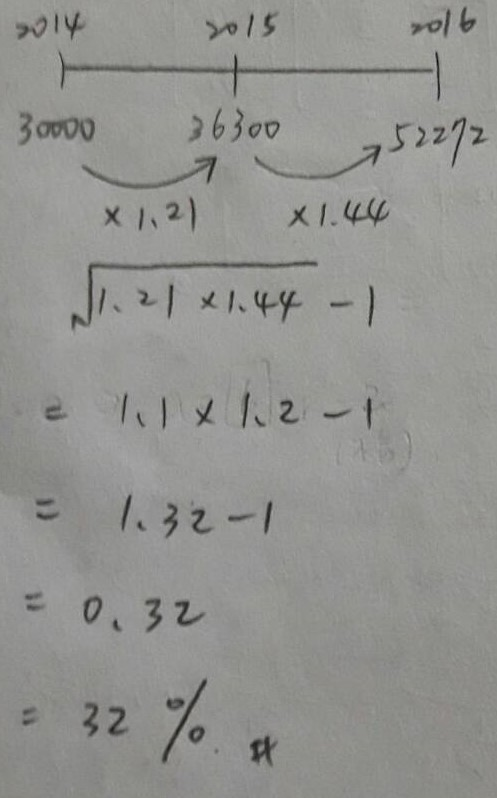 2014 2015 2016
30000 36300 52272
×1.21 ×1.44
√1.21 ×1.44 - 1
= 1.1 × 1.2 - 1
= 1.32 - 1
= 0.32
= 32 % #